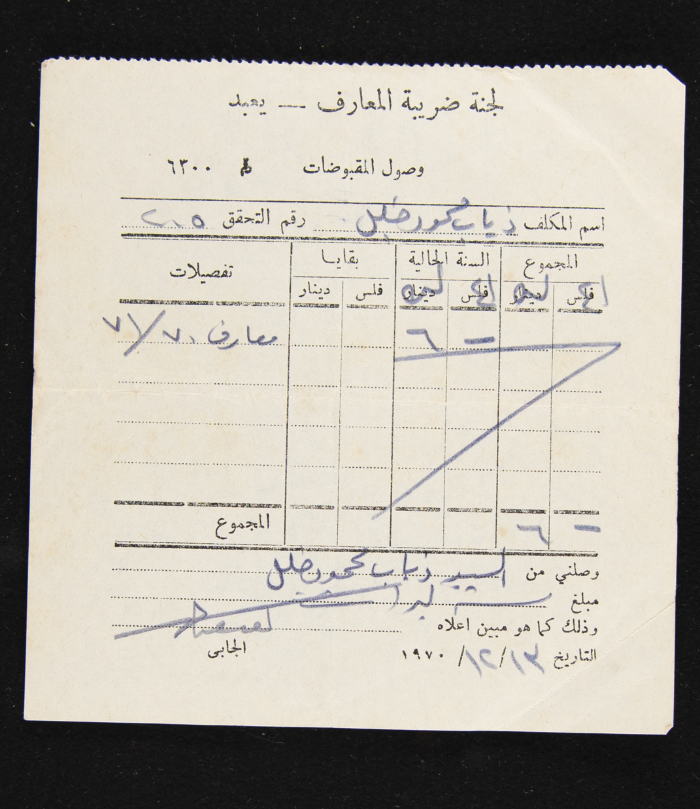 لجنة ضريبة المعارف — يعبد
وصول المقبوضات ٦٣٠٠
اسم المكلف ذياب محمود خليل رقم التحقق ٢٠٥
المجموع السنة الحالية بقايا تفصيلات
فلس دينار فلس دينار فلس دينار
- ٦ معارف ٧٠/٧١
- ٦ المجموع
وصلني من السيد ذياب محمود خليل
مبلغ ستة ليرات
وذلك كما هو مبين اعلاه
التاريخ ١٣/١٢/١٩٧٠ الجابي